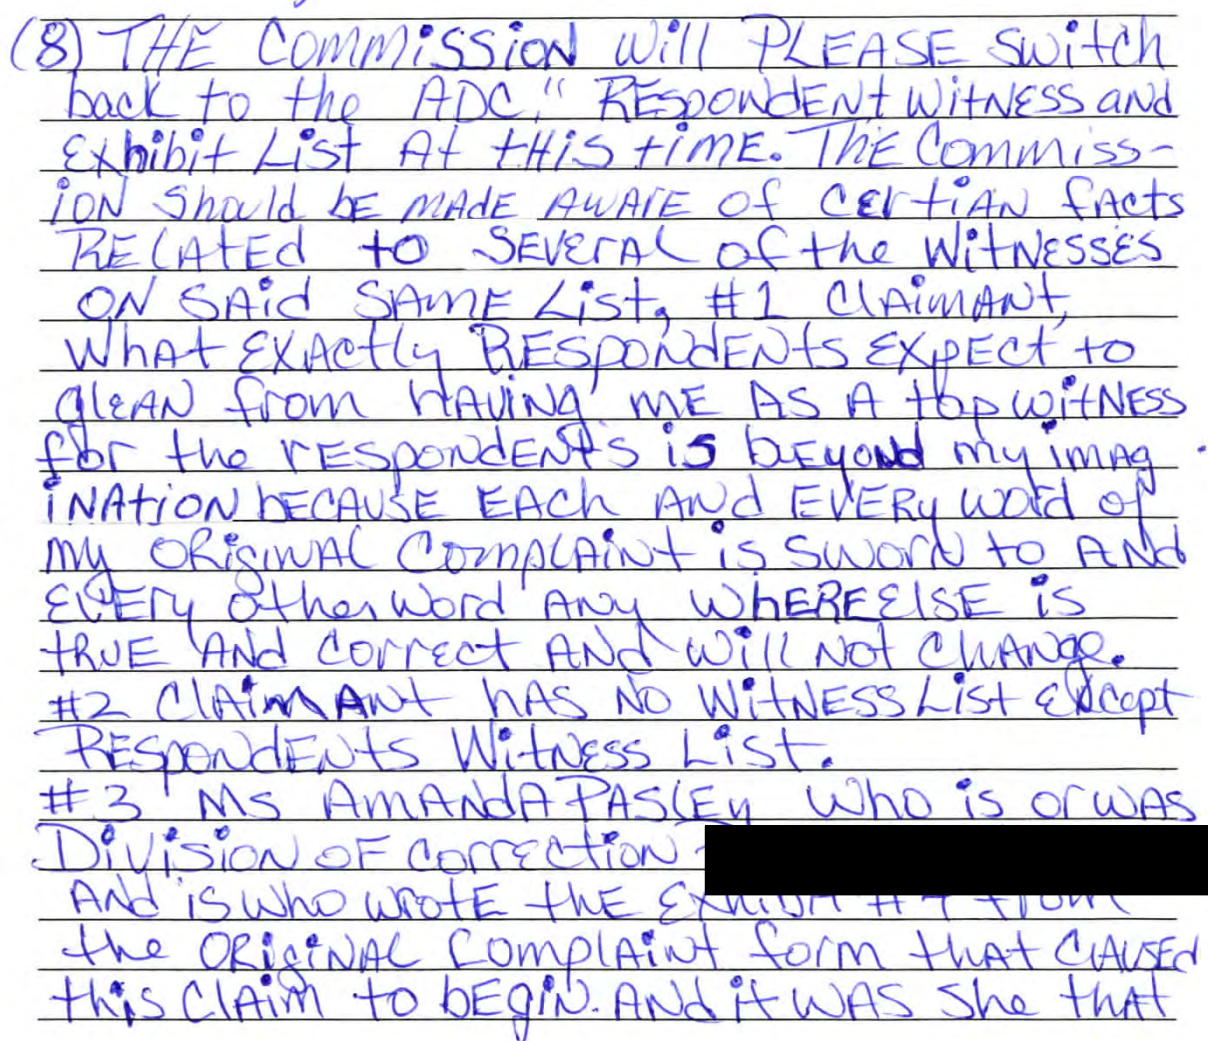 (8) THE COMMISSION will PLEASE Switch
back to the ADC." RESPONDENT WITNESS and
Exhibit List At tHiS timE. THE Commiss-
ION Should bE MAdE AwArE Of CErtiAN fActs
RELAtEd to SEVErAL of the WitNESSES
ON SAid SAmE List, #1 ClAimANt,
WhAt EXActly RESpoNdENts EXpEct to
glEAN from HAViNg mE AS A top witNESS
for the rESpoNdENts is bEyoNd my imAg
iNAtioN bECAUSE EACh ANd EVERy word of
my ORigiNAL ComplAiNt is SworN to ANd
EVERy other word ANy WhEREElSE is
tRUE ANd CorrEct ANd will Not ChANgE.
#2 ClAimANt hAS No WitNESS List Except
RESpoNdENts WitNESS List.
#3 MS AmANdA PASlEy who is or wAS
DiViSioN OF CorrEctioN
ANd is who wrotE thE Exhibit #4 from
the ORigiNAL ComplAiNt form thAt CAUSEd
this ClAim to bEgiN. ANd it WAS She thAt